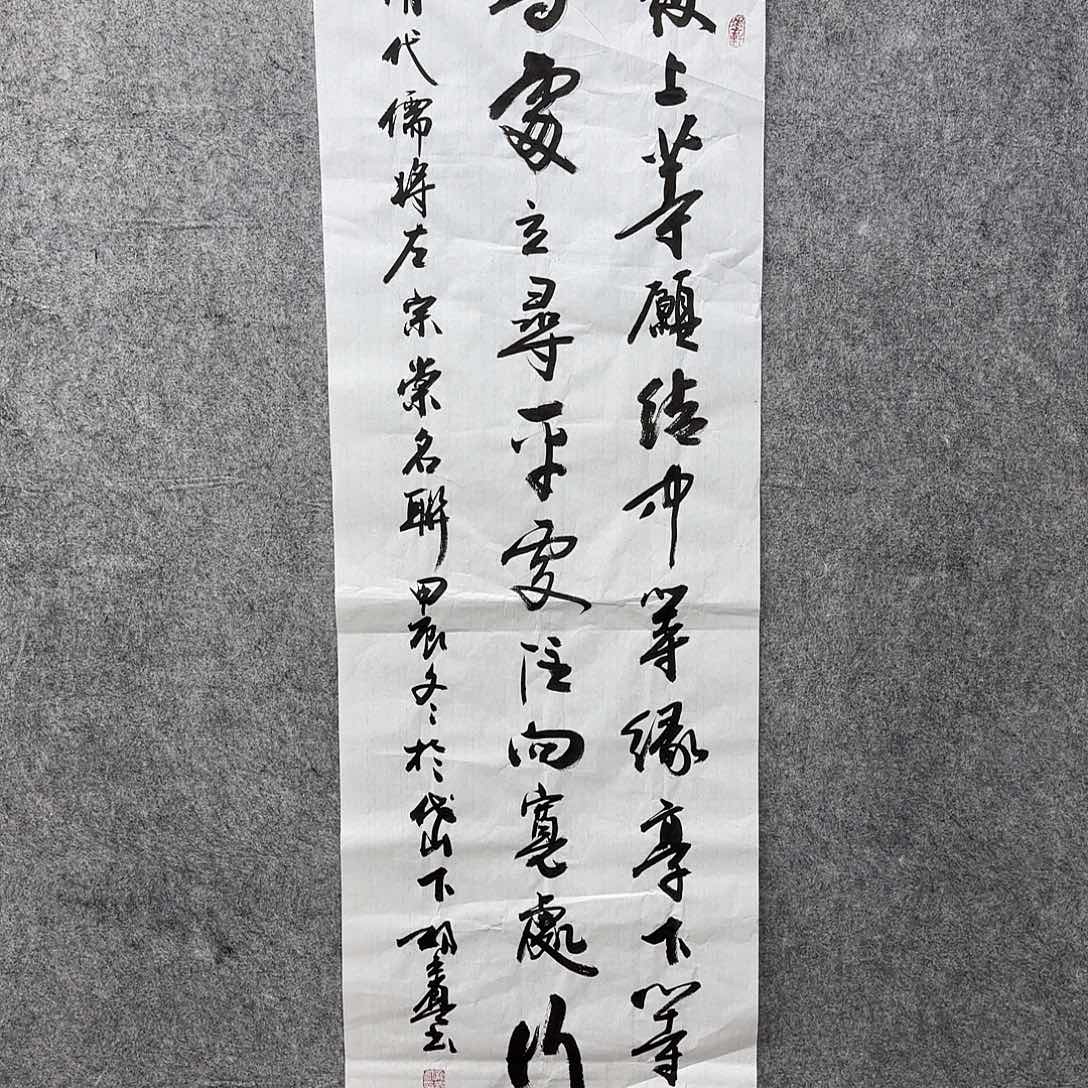 發上等願結中等緣享下等
高處立尋平處住向寬處行
清代儒將左宗棠名聯甲辰冬於岱山下胡